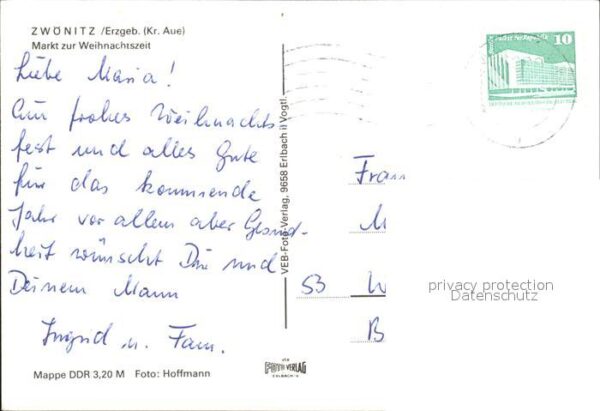 ZWÖNITZ /Erzgeb. (Kr. Aue)
Markt zur Weihnachtszeit
Liebe Maria!
Ein frohes Weihnachts-
fest und alles Gute
für das kommende
Jahr vor allem aber Gesund-
heit wünscht Dir und
Deinem Mann
Ingrid u. Fam.
Mappe DDR 3,20 M Foto: Hoffmann
VEB-Foto-Verlag, 9658 Erlbach i/ Vogtl.
VEB
FOTO VERLAG
ERLBACH
10
Frau
M
53 W
B
privacy protection
Datenschutz